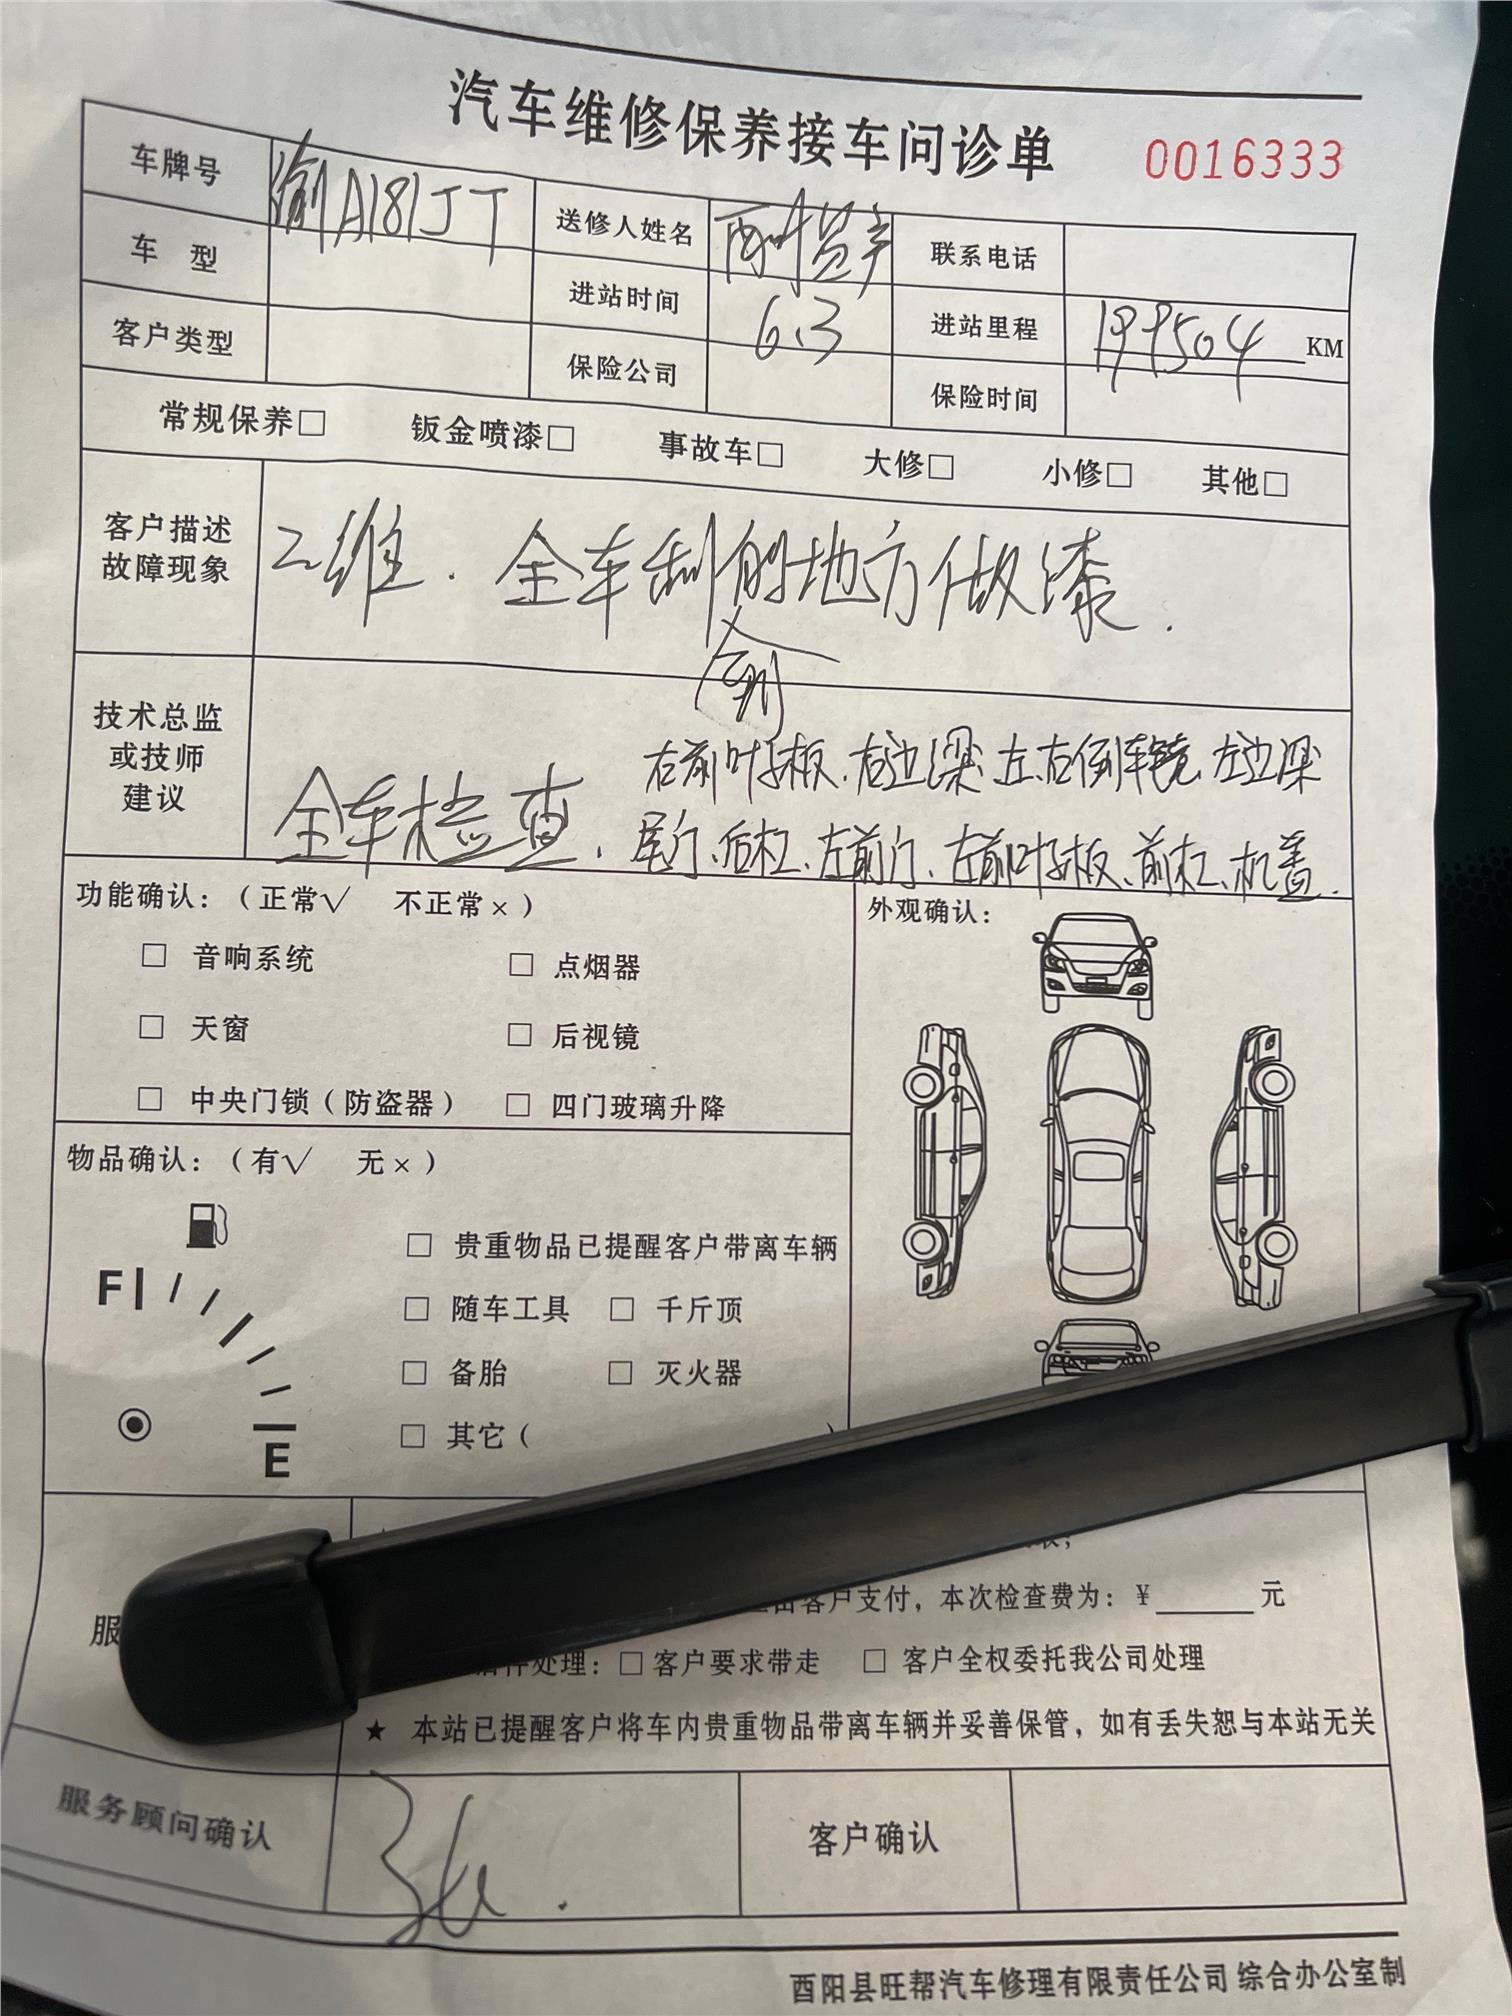 汽车维修保养接车问诊单
0016333
车牌号 渝A181JT 送修人姓名 联系电话
车 型 进站时间 6.3 进站里程 199504 KM
客户类型 保险公司 保险时间
常规保养□ 钣金喷漆□ 事故车□ 大修□ 小修□ 其他□
客户描述
故障现象
二维.全车刮的地方做漆.
技术总监
或技师
建议
全车检查.
右前叶子板、右边梁、左、右倒车镜、左边梁
尾门、后杠、左前门、左前叶子板、前杠、机盖.
功能确认：（正常√ 不正常×）
□ 音响系统 □ 点烟器
□ 天窗 □ 后视镜
□ 中央门锁（防盗器） □ 四门玻璃升降
外观确认：
物品确认：（有√ 无×）
□ 贵重物品已提醒客户带离车辆
F
□ 随车工具 □ 千斤顶
□ 备胎 □ 灭火器
□ 其它（ ）
E
服
客户支付，本次检查费为：￥ 元
件处理：□客户要求带走 □ 客户全权委托我公司处理
★ 本站已提醒客户将车内贵重物品带离车辆并妥善保管，如有丢失恕与本站无关
服务顾问确认 客户确认
酉阳县旺帮汽车修理有限责任公司 综合办公室制